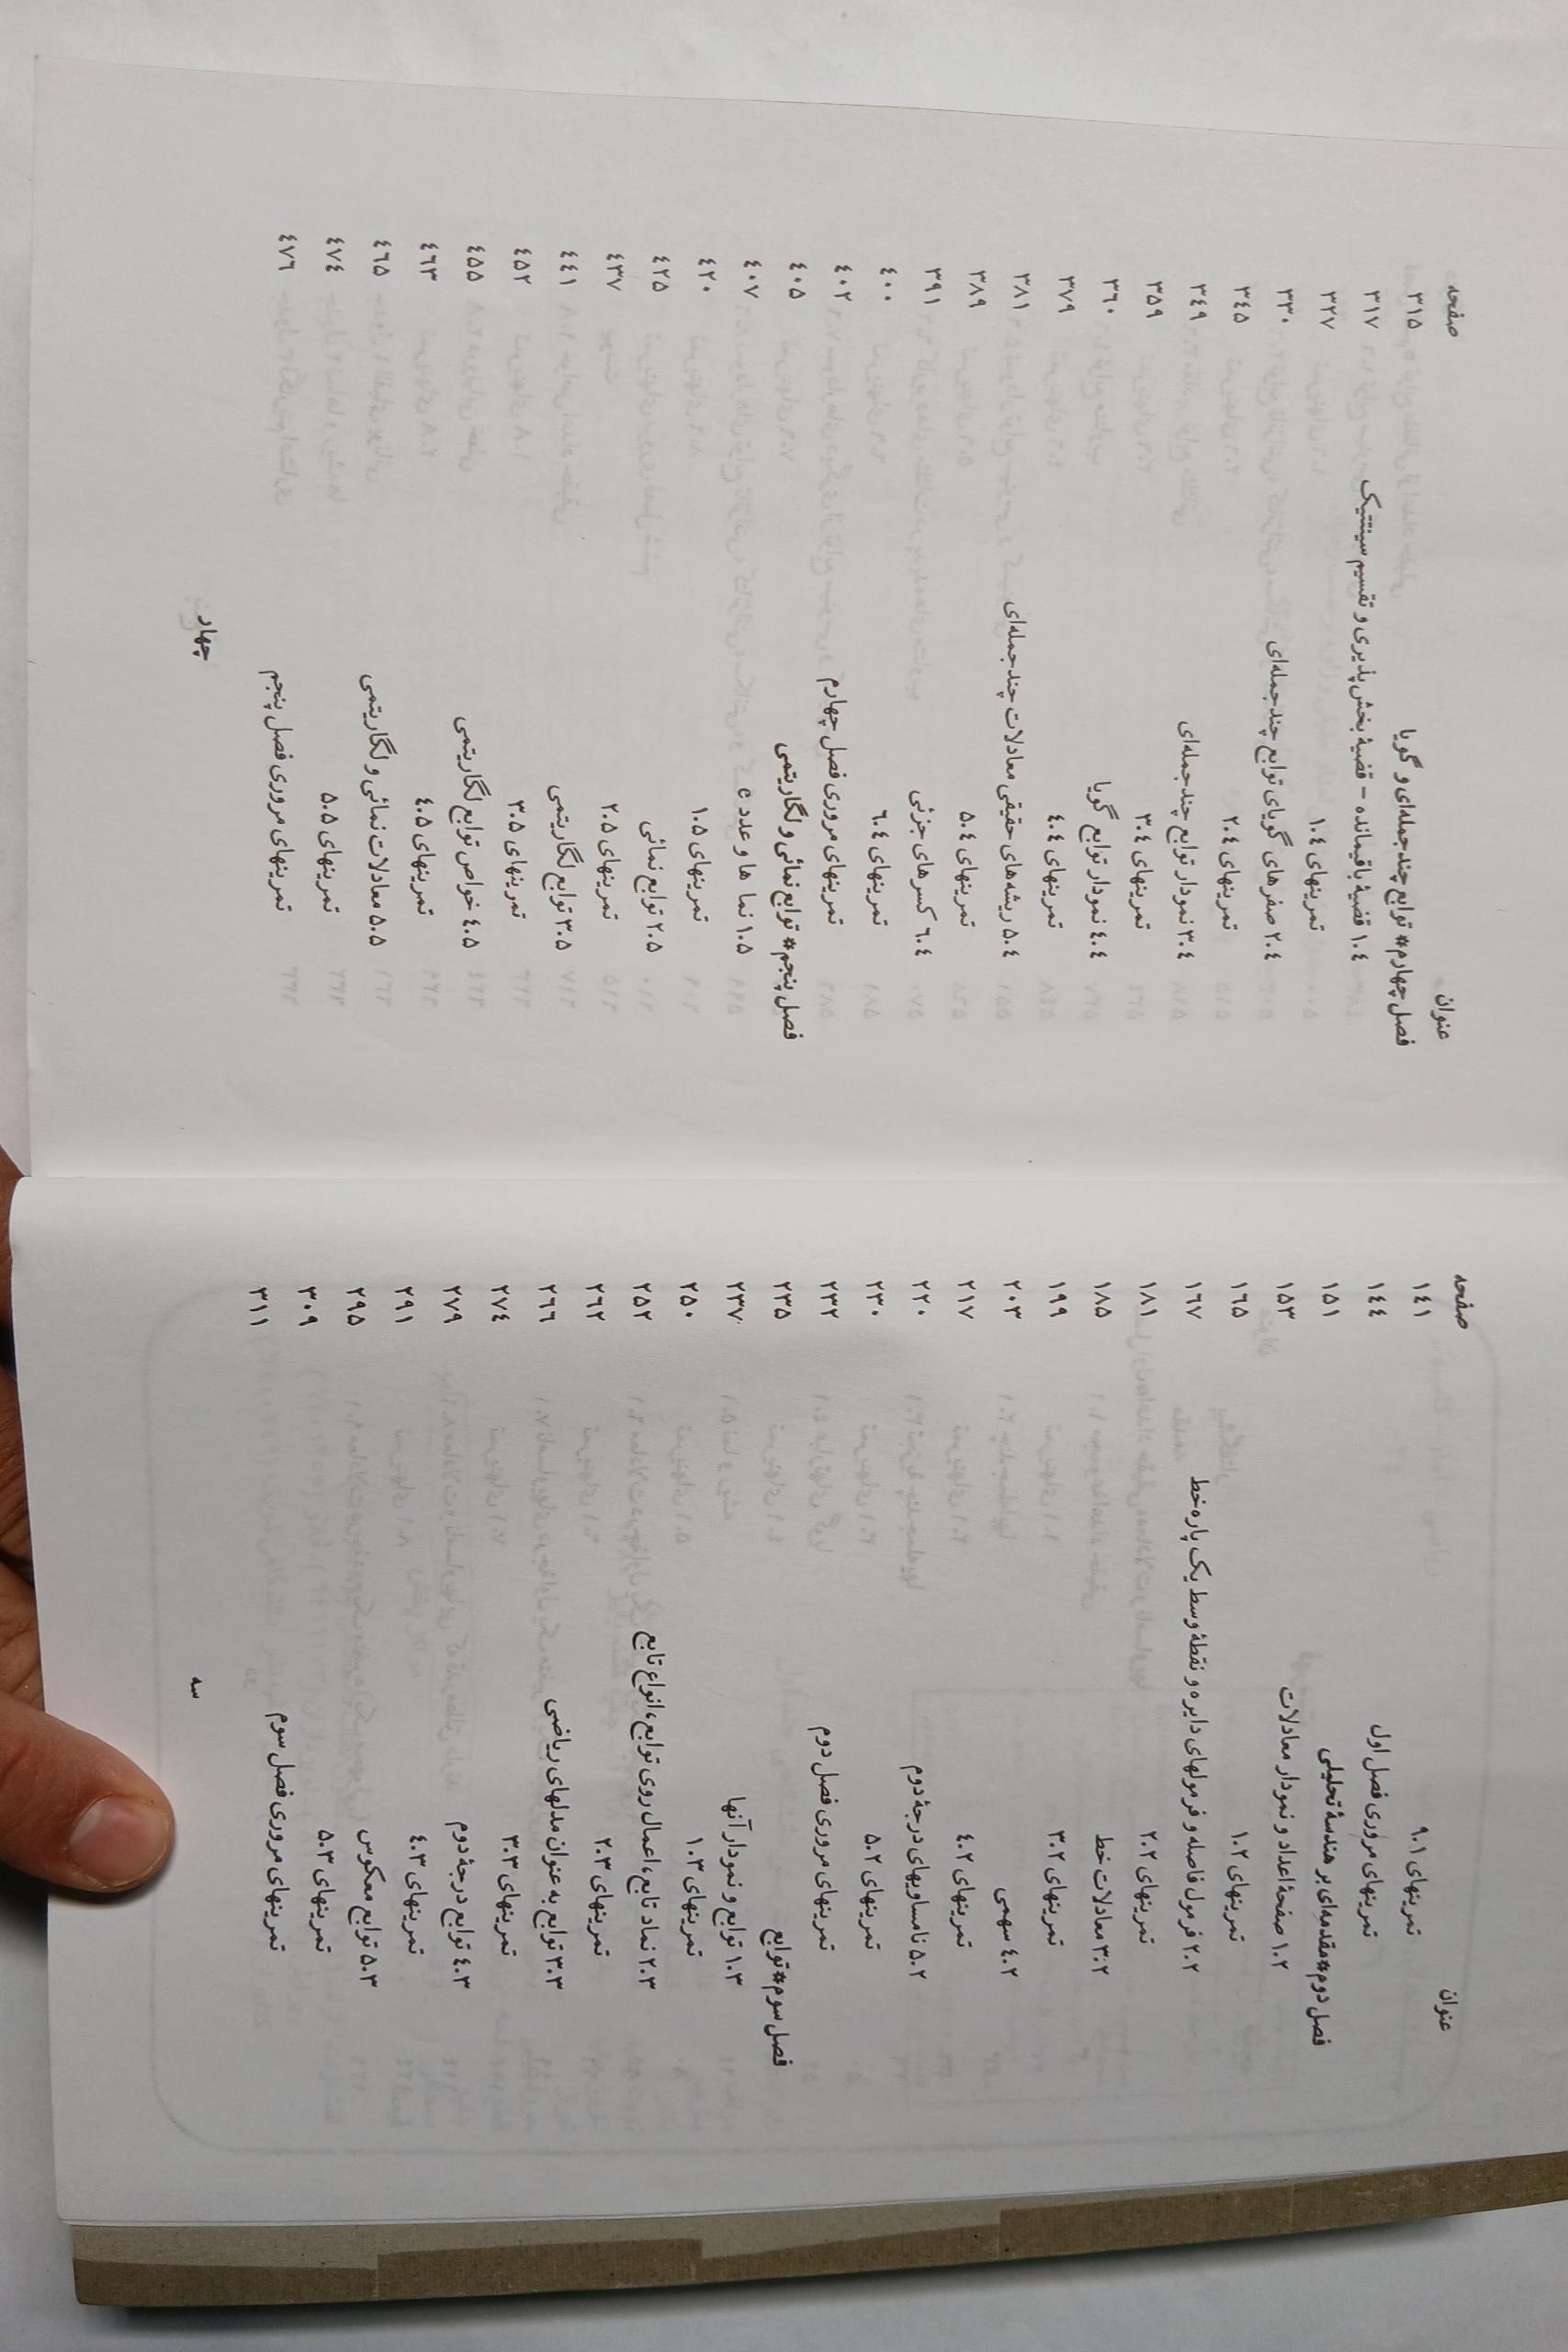 عنوان صفحه
تمرینهای ۹.۱ ۱٤۱
تمرینهای مروری فصل اول ۱٤٤
فصل دوم# مقدمه‌ای بر هندسهٔ تحلیلی ۱۵۱
۱.۲ صفحهٔ اعداد و نمودار معادلات ۱۵۳
تمرینهای ۱.۲ ۱۶۵
۲.۲ فرمول فاصله و فرمولهای دایره و نقطهٔ وسط یک پاره خط ۱۶۷
تمرینهای ۲.۲ ۱۸۱
۳.۲ معادلات خط ۱۸۵
تمرینهای ۳.۲ ۱۹۹
٤.۲ سهمی ۲۰۳
تمرینهای ٤.۲ ۲۱۷
۵.۲ نامساویهای درجهٔ دوم ۲۲۰
تمرینهای ۵.۲ ۲۳۰
تمرینهای مروری فصل دوم ۲۳۲
فصل سوم# توابع ۲۳۵
۱.۳ توابع و نمودار آنها ۲۳۷
تمرینهای ۱.۳ ۲۵۰
۲.۳ نماد تابع، اعمال روی توابع، انواع تابع ۲۵۲
تمرینهای ۲.۳ ۲۶۲
۳.۳ توابع به عنوان مدلهای ریاضی ۲۶۶
تمرینهای ۳.۳ ۲۷٤
٤.۳ توابع درجهٔ دوم ۲۷۹
تمرینهای ٤.۳ ۲۹۱
۵.۳ توابع معکوس ۲۹۵
تمرینهای ۵.۳ ۳۰۹
تمرینهای مروری فصل سوم ۳۱۱
سه
عنوان صفحه
فصل چهارم# توابع چند جمله‌ای و گویا ۳۱۵
۱.٤ قضیهٔ باقیمانده - قضیهٔ بخش پذیری و تقسیم سینتتیک ۳۱۷
تمرینهای ۱.٤ ۳۲۷
۲.٤ صفرهای گویای توابع چند جمله‌ای ۳۳۰
تمرینهای ۲.٤ ۳٤۵
۳.٤ نمودار توابع چند جمله‌ای ۳٤۹
تمرینهای ۳.٤ ۳۵۹
٤.٤ نمودار توابع گویا ۳۶۰
تمرینهای ٤.٤ ۳۷۹
۵.٤ ریشه‌های حقیقی معادلات چند جمله‌ای ۳۸۱
تمرینهای ۵.٤ ۳۸۹
۶.٤ کسرهای جزئی ۳۹۱
تمرینهای ۶.٤ ٤۰۰
تمرینهای مروری فصل چهارم ٤۰۲
فصل پنجم# توابع نمائی و لگاریتمی ٤۰۵
۱.۵ نما ها و عدد e ٤۰۷
تمرینهای ۱.۵ ٤۲۰
۲.۵ توابع نمائی ٤۲۵
تمرینهای ۲.۵ ٤۳۷
۳.۵ توابع لگاریتمی ٤٤۱
تمرینهای ۳.۵ ٤۵۲
٤.۵ خواص توابع لگاریتمی ٤۵۵
تمرینهای ٤.۵ ٤۶۳
۵.۵ معادلات نمائی و لگاریتمی ٤۶۵
تمرینهای ۵.۵ ٤۷٤
تمرینهای مروری فصل پنجم ٤۷۶
چهار